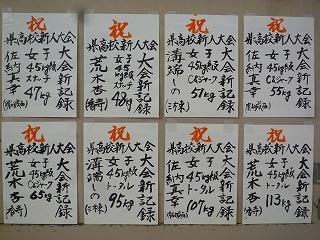 祝
県高校新人大会
大会新記録
女子45kg級
スナッチ
47kg
真幸
祝
県高校新人大会
大会新記録
女子45kg級
スナッチ
48kg
荒木杏
(香寺)
祝
県高校新人大会
大会新記録
女子45kg級
C&ジャーク
57kg
溝端しの
(三木東)
祝
県高校新人大会
大会新記録
女子45kg級
C&ジャーク
55kg
真幸
祝
県高校新人大会
大会新記録
女子45kg級
C&ジャーク
65kg
荒木杏
(香寺)
祝
県高校新人大会
大会新記録
女子45kg級
トータル
95kg
溝端しの
(三木東)
祝
県高校新人大会
大会新記録
女子45kg級
トータル
107kg
真幸
祝
県高校新人大会
大会新記録
女子45kg級
トータル
113kg
荒木杏
(香寺)